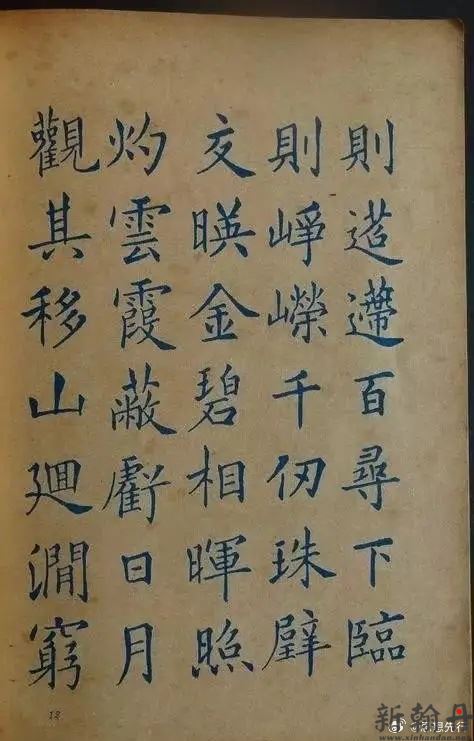 則迢遰百尋下臨
則崢嶸千仞珠璧
交暎金碧相暉照
灼雲霞蔽虧日月
觀其移山廻澗窮
12
新翰丹